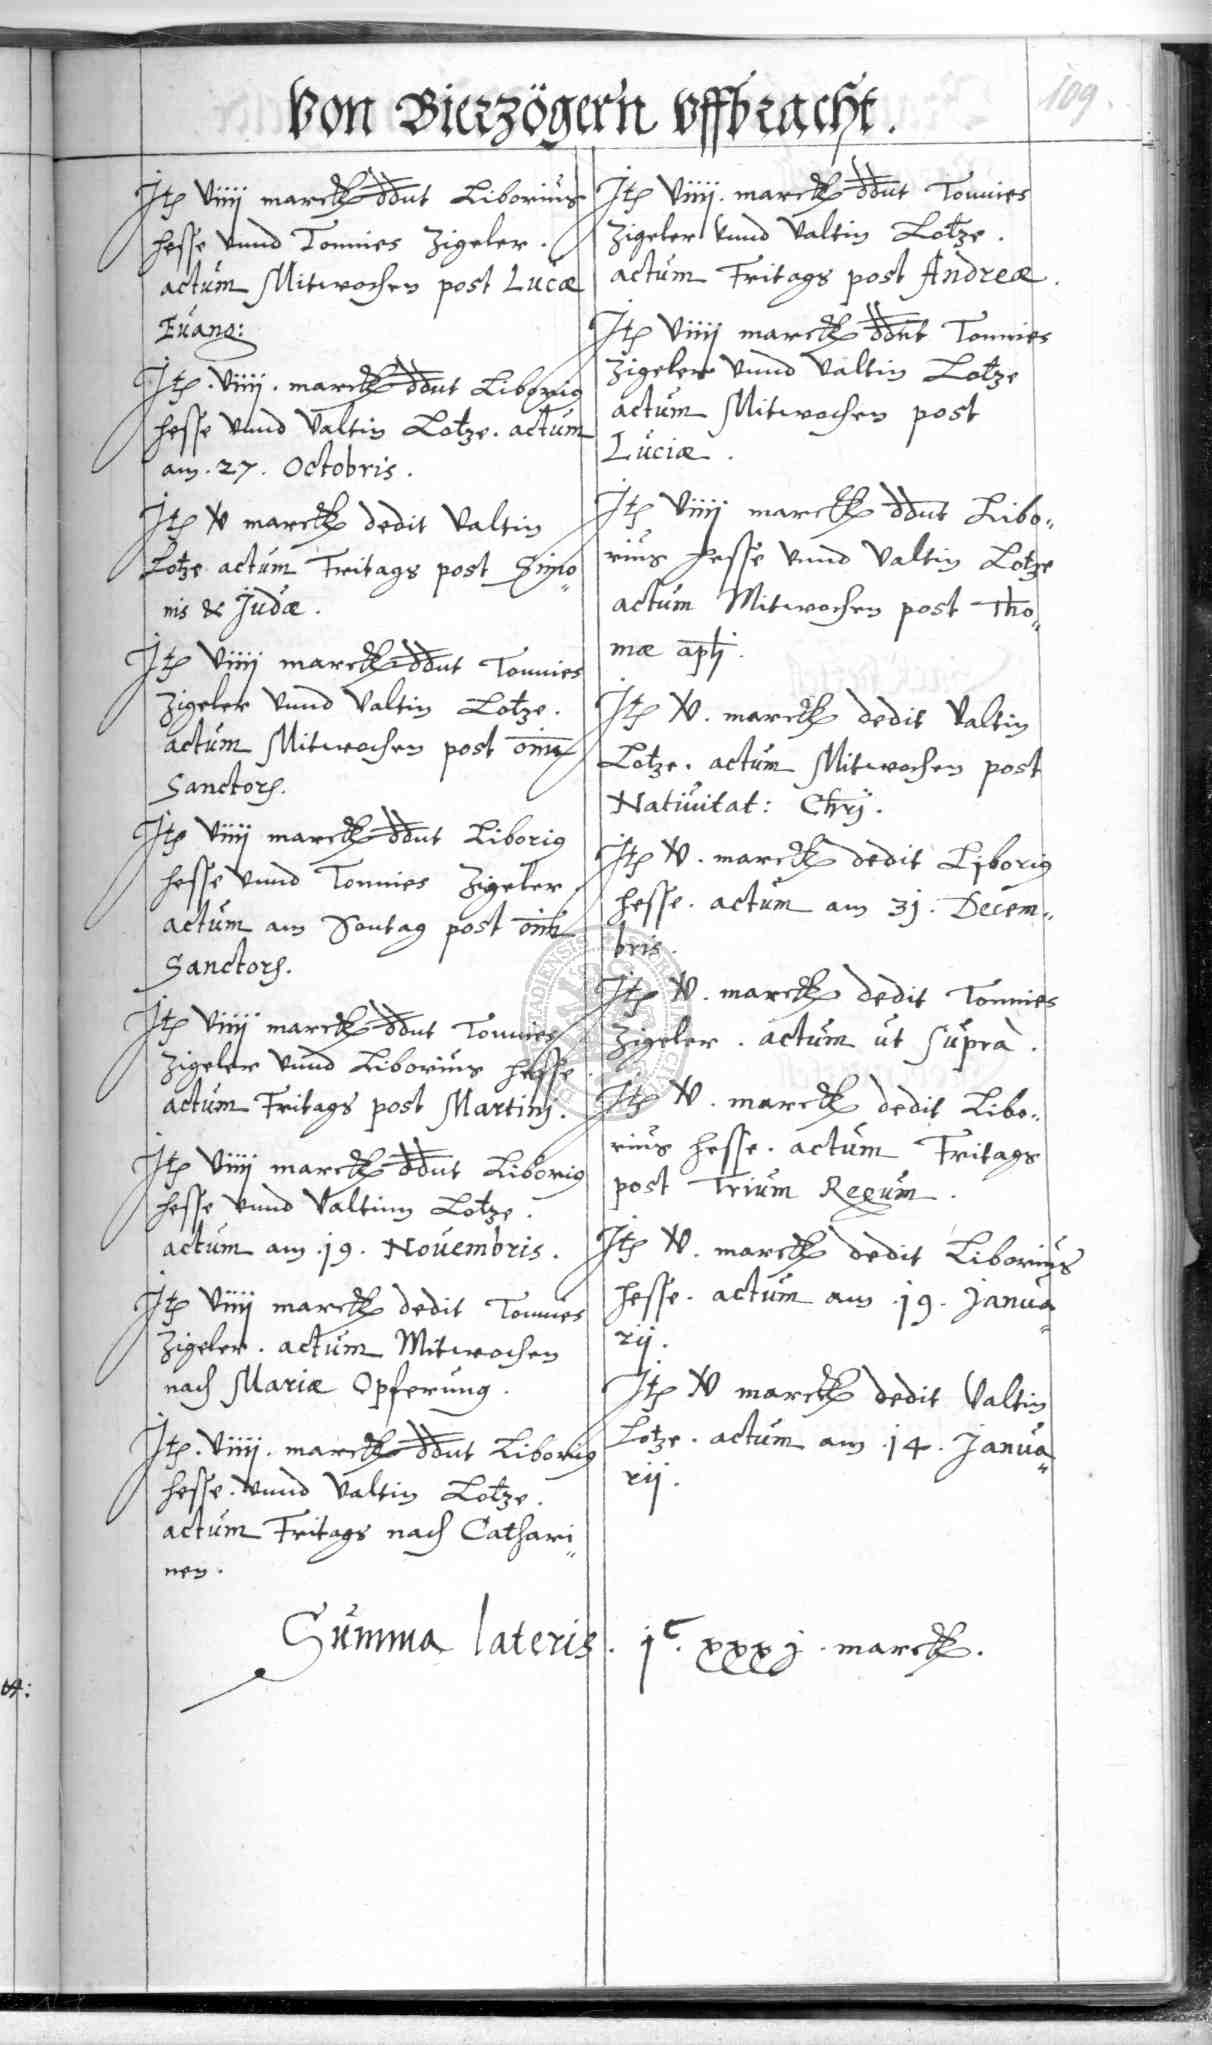 Von Bierzögern vffbracht.
109.
Itp Viiij marckh ddnt Liborius
Hesse vnnd Tonnies Zigeler.
actum Mitwochen post Lucæ
Euang:
Itp. Viiij. marckh ddnt Liborig
Hesse vnnd Valtin Lotze. actum
am. 27. Octobris.
Itp V marckh dedit Valtin
Lotze actum Fritags post Simo„
nis & Judæ.
Itp Viiij marckh ddnt Tonnies
Zigeler vnnd Valtin Lotze.
actum Mitwochen post oim
Sanctorꝝ.
Itp Viiij marckh ddnt Liborig
Hesse vnnd Tonnies Zigeler.
actum am Sontag post oim
Sanctorꝝ.
Itp Viiij marckh ddnt Tonnies
Zigeler vnnd Liborius Hesse.
actum Fritags post Martinj.
Itp Viiij marckh ddnt Liborig
Hesse vnnd Valtinn Lotze.
actum am .19. Nouembris.
Itp Viiij marckh dedit Tonnies
Zigeler. actum Mitwochen
nach Mariæ Opferung.
Itp. Viiij. marckh ddnt Liborig
Hesse. vnnd Valtin Lotze.
actum Fritags nach Cathari„
nen.
Itp Viiij. marckh ddnt Tonnies
Zigeler vnnd Valtin Lotze.
actum Fritags post Andreæ.
Itp Viiij marckh ddnt Tonnies
Zigeler vnnd Valtin Lotze
actum Mitwochen post
Luciæ.
Itp Viiij marckh ddnt Libo„
rius Hesse vnnd Valtin Lotze
actum Mitwochen post Tho„
mæ aplj.
Itp V. marckh dedit Valtin
Lotze. actum Mitwochen post
Natiuitat: Chrj.
Itp V. marckh dedit Liborig
Hesse. actum am 31. Decem„
bris.
Itp V. marckh dedit Tonnies
Zigeler. actum ut supra.
Itp V. marckh dedit Libo„
rius Hesse. actum Fritags
post Trium Regum.
Itp V. marckh dedit Liborius
Hesse. actum am .19. Janua„
rij.
Itp V marckh dedit Valtin
Lotze. actum am .14. Janua„
rij.
Summa lateris. jᶜ. xxxj. marckh.